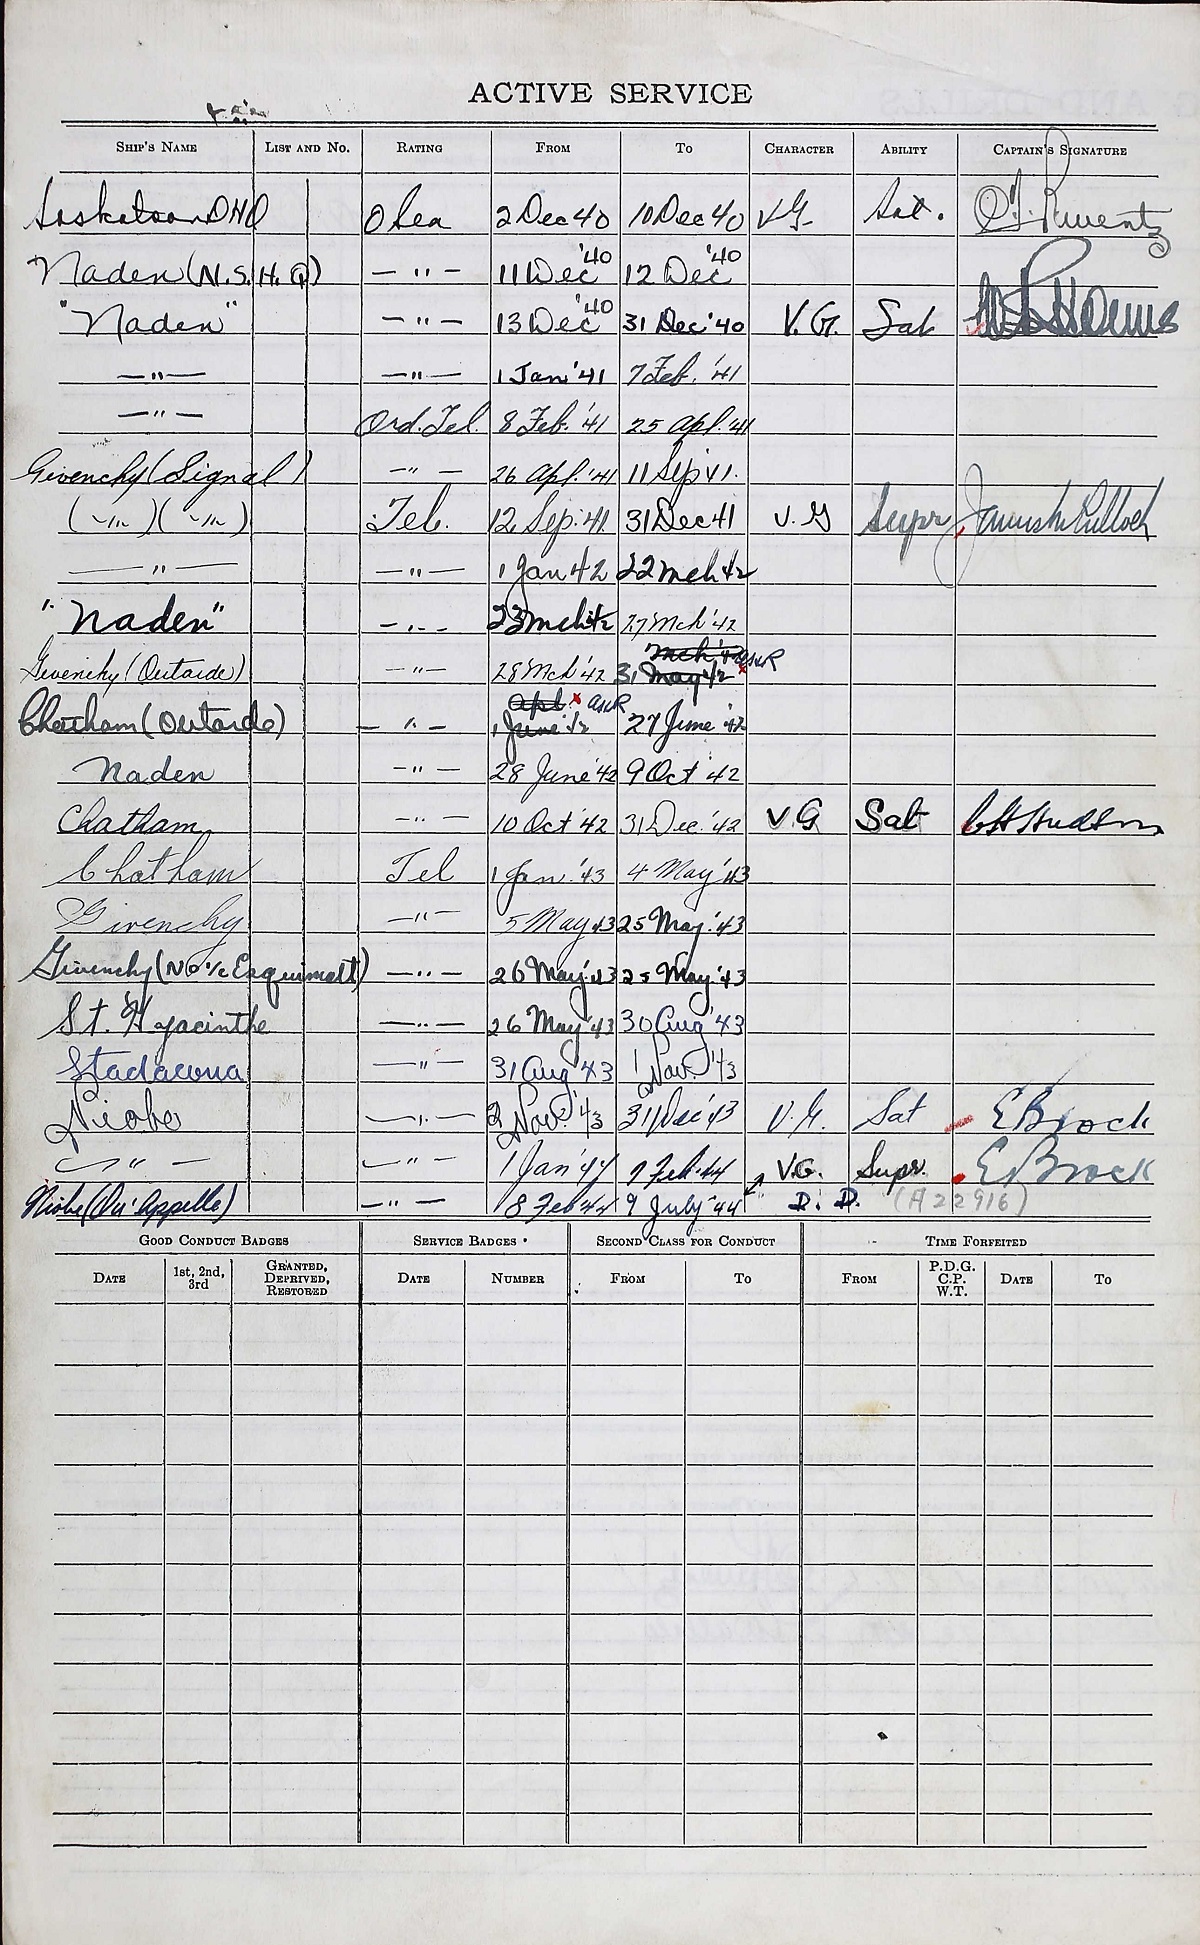 ACTIVE SERVICE
SHIP'S NAME LIST AND NO. RATING FROM TO CHARACTER ABILITY CAPTAIN'S SIGNATURE
Saskatoon DHQ O Sea 2 Dec 40 10 Dec 40 VG. Sat.
Naden (N.S.H.Q) — " — 11 Dec '40 12 Dec '40
"Naden" — " — 13 Dec '40 31 Dec '40 V.G. Sat
— " — — " — 1 Jan '41 7 Feb. '41
— " — Ord. Tel. 8 Feb. '41 25 Apl. '41
Givenchy (Signal) — " — 26 Apl. '41 11 Sep 41.
( — " — ) ( — " — ) Tel. 12 Sep. 41 31 Dec 41 V. G Supr
— " — — " — 1 Jan 42 22 Mch 42
"Naden" — " — 23 Mch 42 27 Mch '42
Givenchy (Outside) — " — 28 Mch '42 31 May 42
Chatham (Outside) — " — 1 June 42 27 June '42
Naden — " — 28 June '42 9 Oct '42
Chatham — " — 10 Oct '42 31 Dec. '42 V.G Sat CH Hudson
Chatham Tel 1 Jan. '43 4 May '43
Givenchy — " — 5 May 43 25 May. '43
Givenchy (NO i/c Esquimalt) — " — 26 May. 43 25 May. '43
St. Hyacinthe — " — 26 May '43 30 Aug '43
Stadacona — " — 31 Aug '43 1 Nov. '43
Niobe — " — 2 Nov. '43 31 Dec '43 V.G. Sat E Brock
— " — — " — 1 Jan '44 7 Feb. 44 V.G. Supr. E Brock
Niobe (Qu'Appelle) — " — 8 Feb 44 9 July '44 D. D. (A22916)
GOOD CONDUCT BADGES SERVICE BADGES SECOND CLASS FOR CONDUCT TIME FORFEITED
DATE 1st, 2nd, 3rd GRANTED, DEPRIVED, RESTORED DATE NUMBER FROM TO FROM P.D.G. C.P. W.T. DATE TO